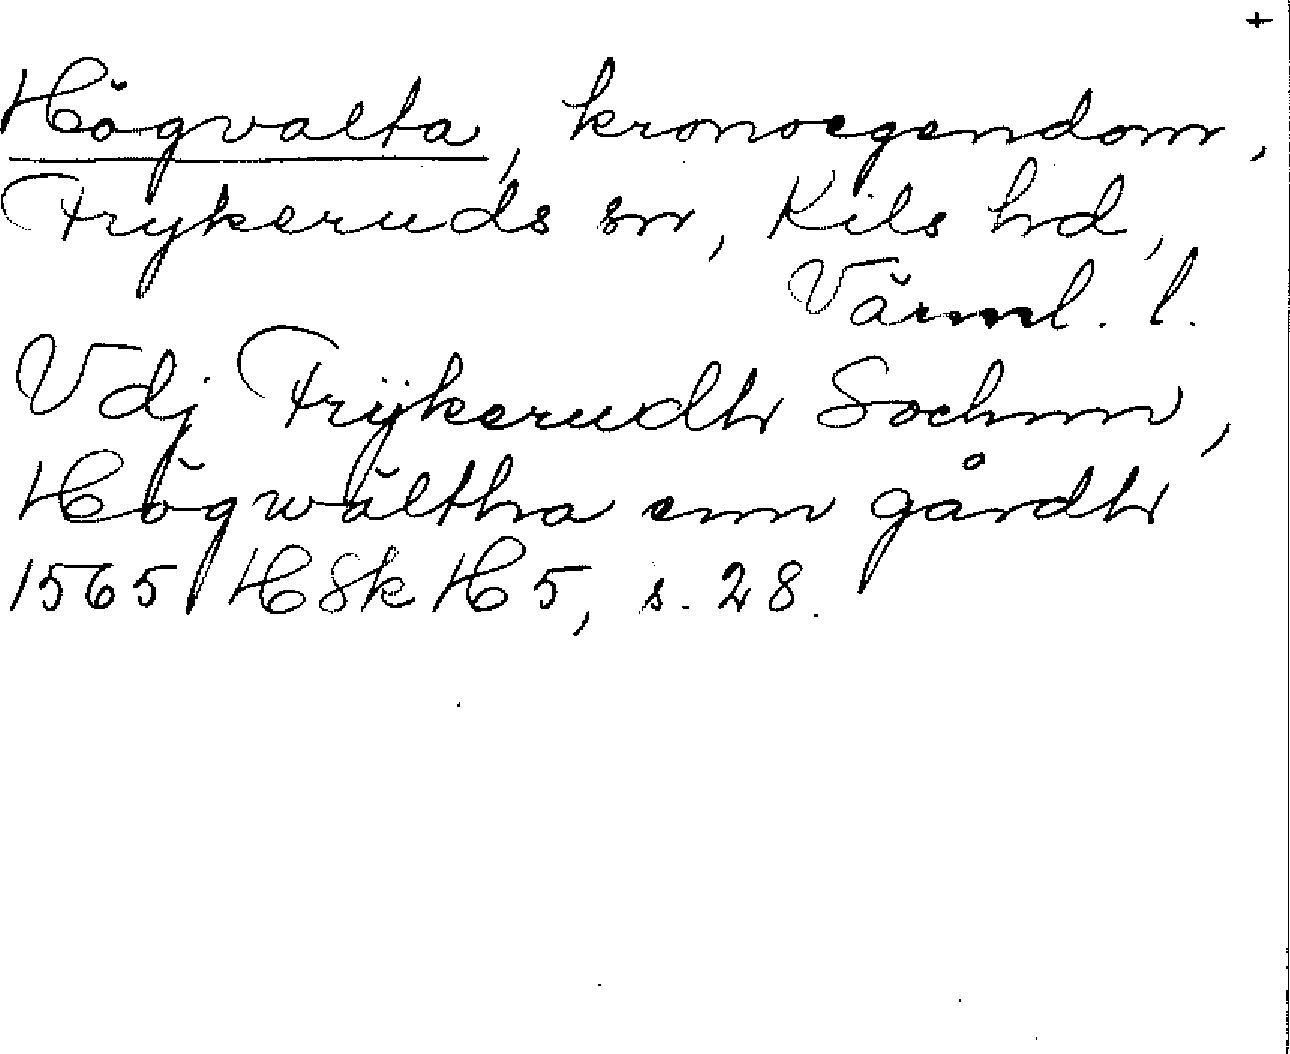 +
Högvalta, kronoegendom,
Frykeruds sn, Kils hd,
Värml. l.
Vdj Frÿkerudh Sochnn,
Högwältha enn gårdh
1565 HSkH 5, s. 28.